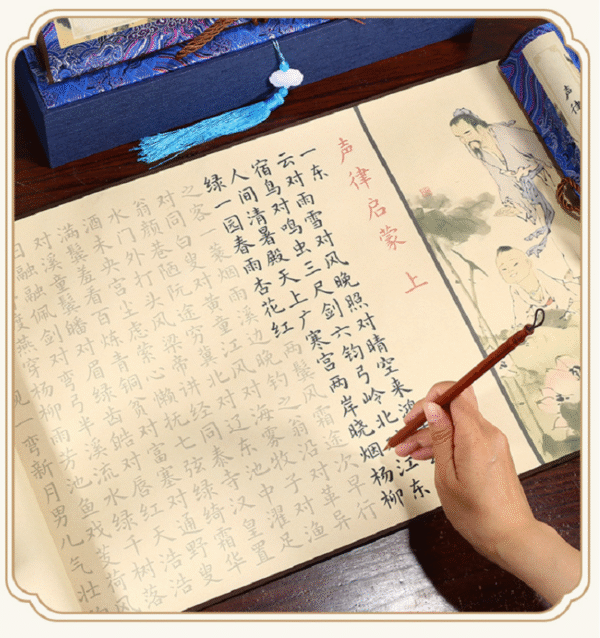 声律
声律启蒙 上
一东
云对雨雪对风晚照对晴空来鸿
宿鸟对鸣虫三尺剑六钧弓岭北江东
人间清暑殿天上广寒宫两岸晓烟杨柳
绿一园春雨杏花红两鬓风霜途次早行
之客一蓑烟雨溪边晚钓之翁沿对革异
对同白叟对黄童江风对海雾牧子对渔
翁颜巷陋阮途穷冀北对辽东池中濯足
水门外打头风梁帝讲经同泰寺汉皇置
酒未央宫尘虑萦心懒抚七弦绿绮霜华
满鬓羞看百炼青铜贫对富塞对通野叟
对溪童鬓皤对眉绿齿皓对唇红天浩浩
日融融佩剑对弯弓半溪流水绿千树落
渡燕穿杨柳雨芳池鱼戏芰荷风
一弯新月男儿气壮